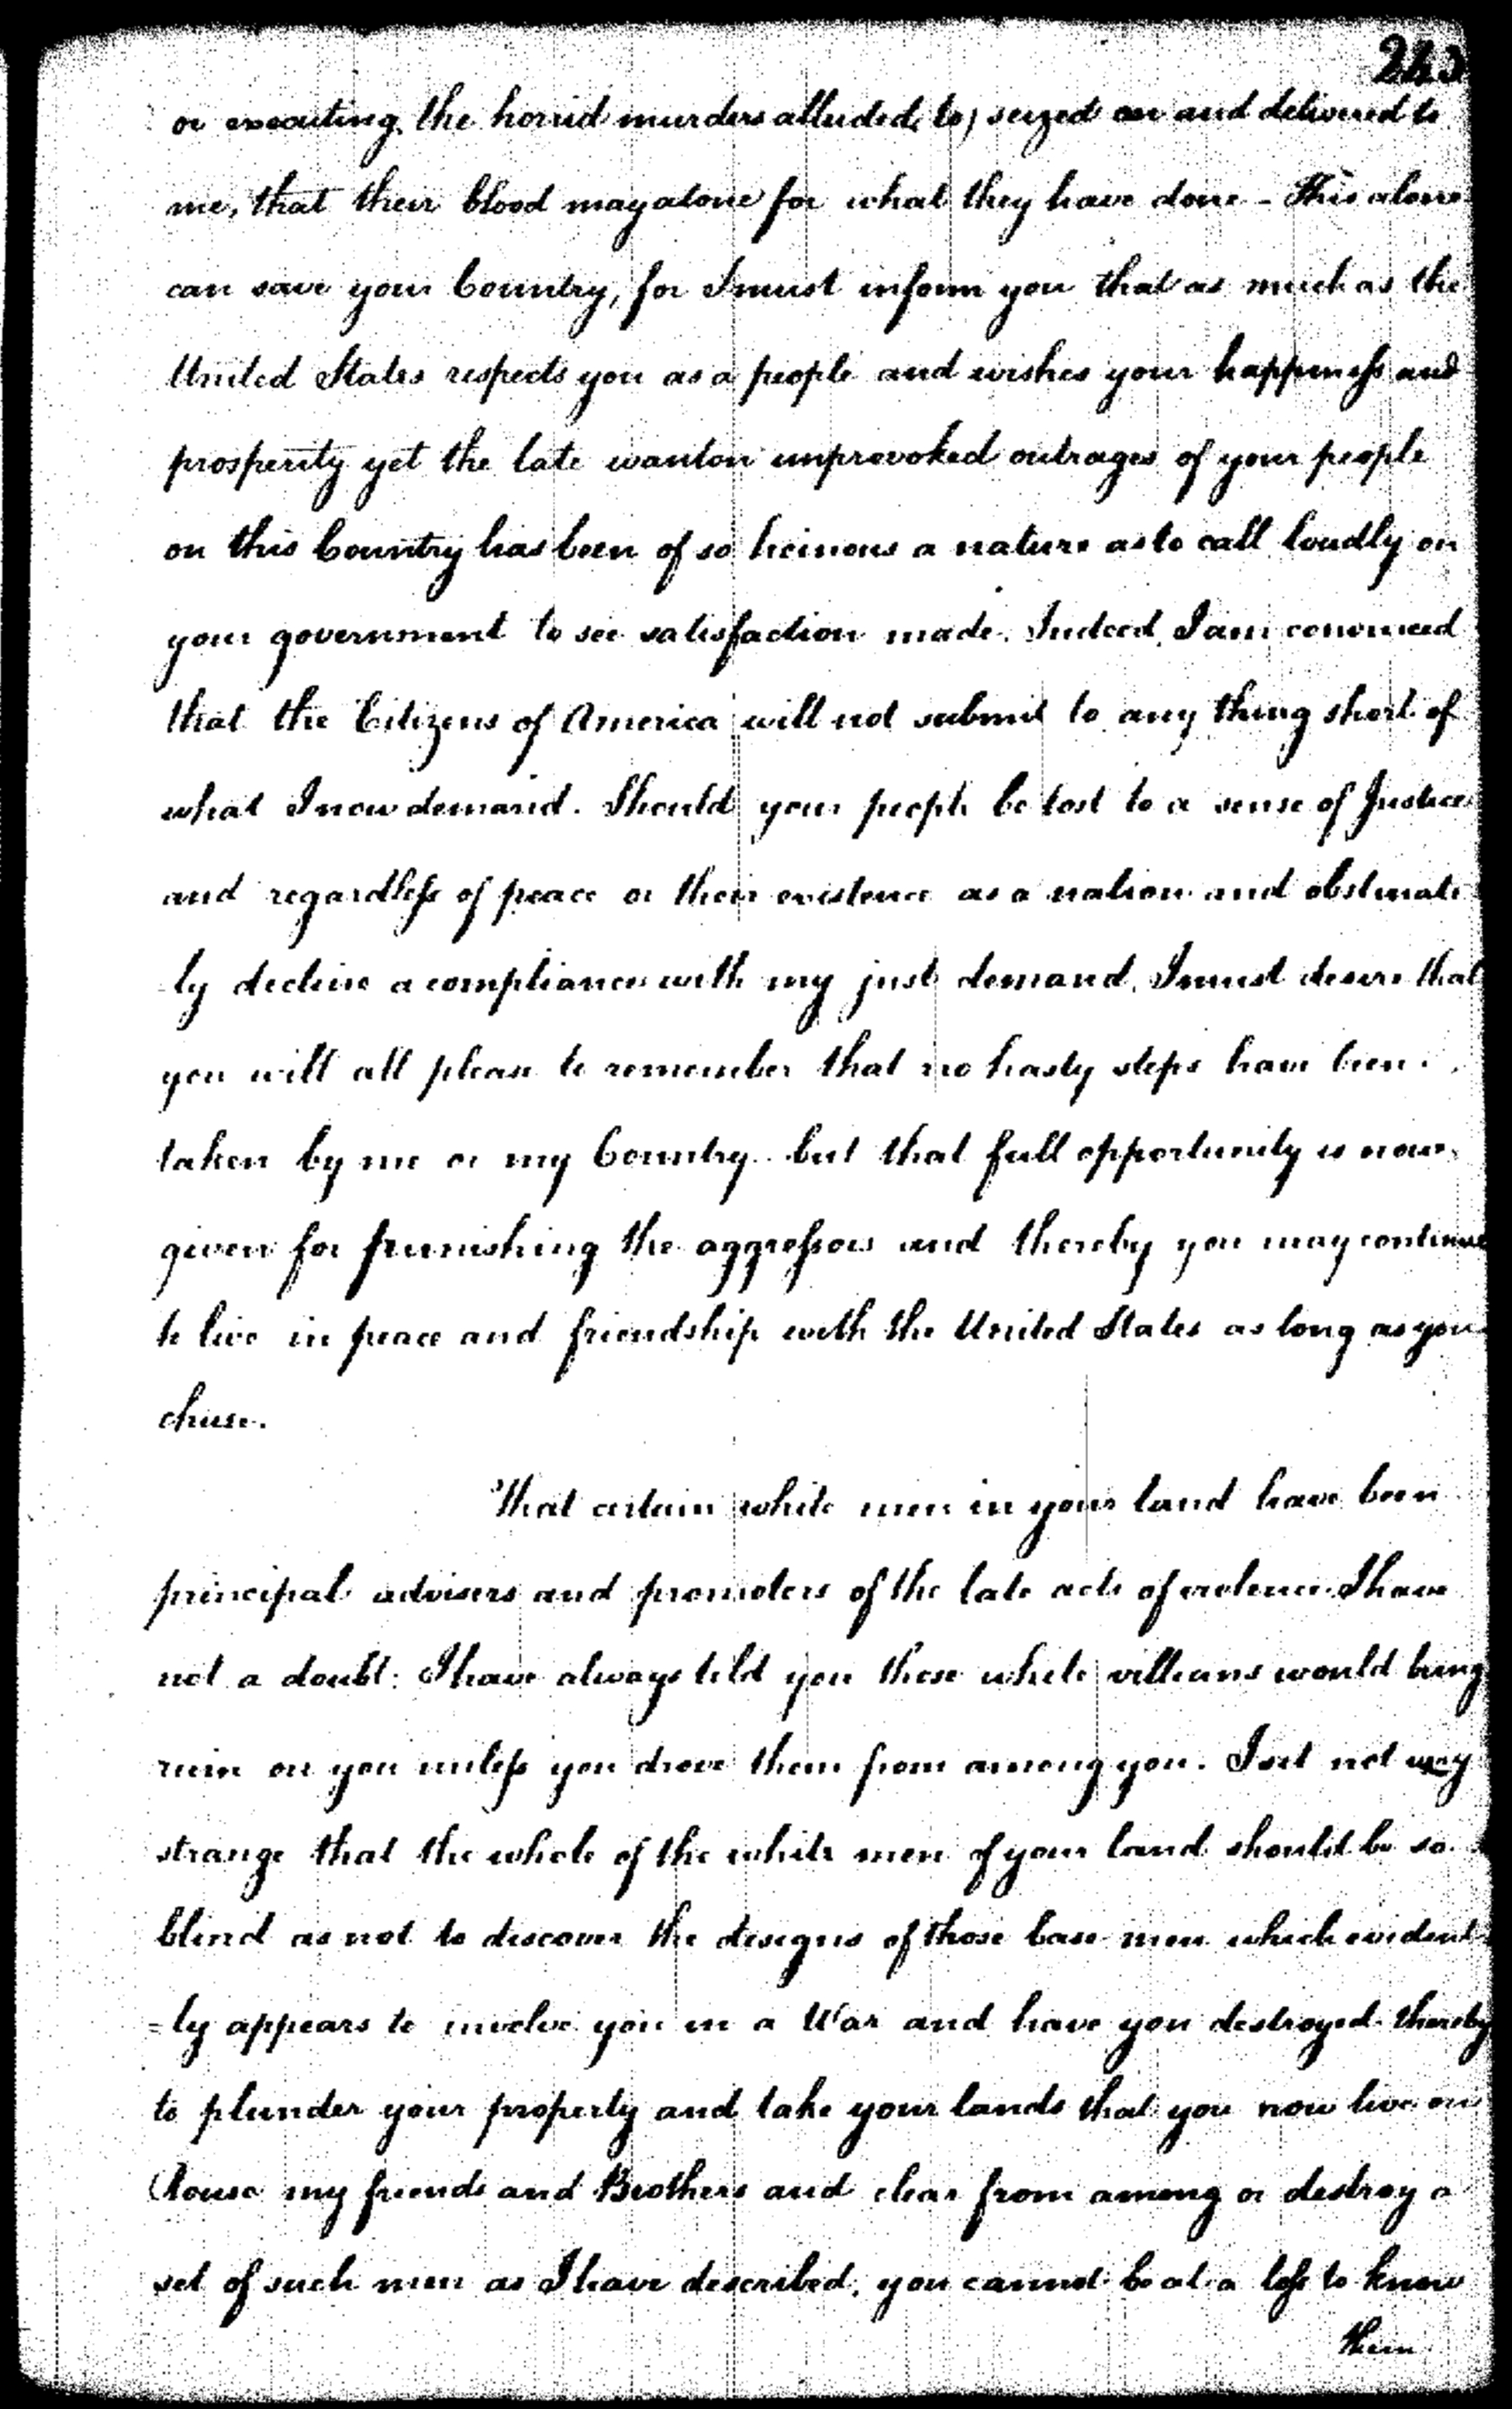 or executing the horrid murders alluded to) seized on and delivered to
me, that their blood may atone for what they have done - This alone
can save your Country, for I must inform you that as much as the
United States respects you as a people and wishes your happiness and
prosperity yet the late wanton unprovoked outrages of your people
on this Country has been of so heinous a nature as to call loudly on
your government to see satisfaction made. Indeed I am convinced
that the Citizens of America will not submit to any thing short of
what I now demand. Should your people be lost to a sense of Justice
and regardless of peace or their existence as a nation and obstinate
ly decline a compliance with my just demand, I must desire that
you will all please to remember that no hasty steps have been
taken by me or my Country but that full opportunity is now
given for punishing the aggressors and thereby you may continue
to live in peace and friendship with the United States as long as you
chuse.
That certain white men in your land have been
principal advisers and promoters of the late acts of violence I have
not a doubt. I have always told you these white villians would bring
ruin on you unless you drove them from among you. Is it not very
strange that the whole of the white men of your land should be so
blind as not to discover the designs of those base men which evident
=ly appears to involve you in a War and have you destroyed thereby
to plunder your property and take your lands that you now live on
Rouse my friends and Brothers and clear from among or destroy a
set of such men as I have described, you cannot be at a loss to know
them